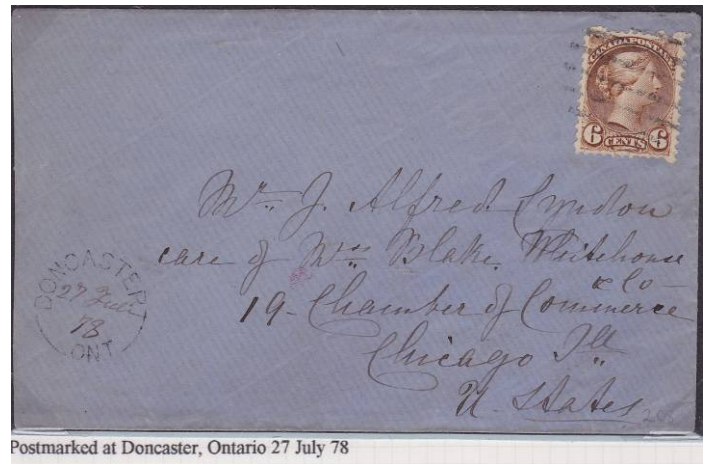 CANADA POSTAGE
6 CENTS 6
Mr. J. Alfred Lyndon
care of Mess Blake, Whitehouse
& Co
19 - Chamber of Commerce
Chicago Ill
U. States
DONCASTER
27 July
78
ONT
Postmarked at Doncaster, Ontario 27 July 78